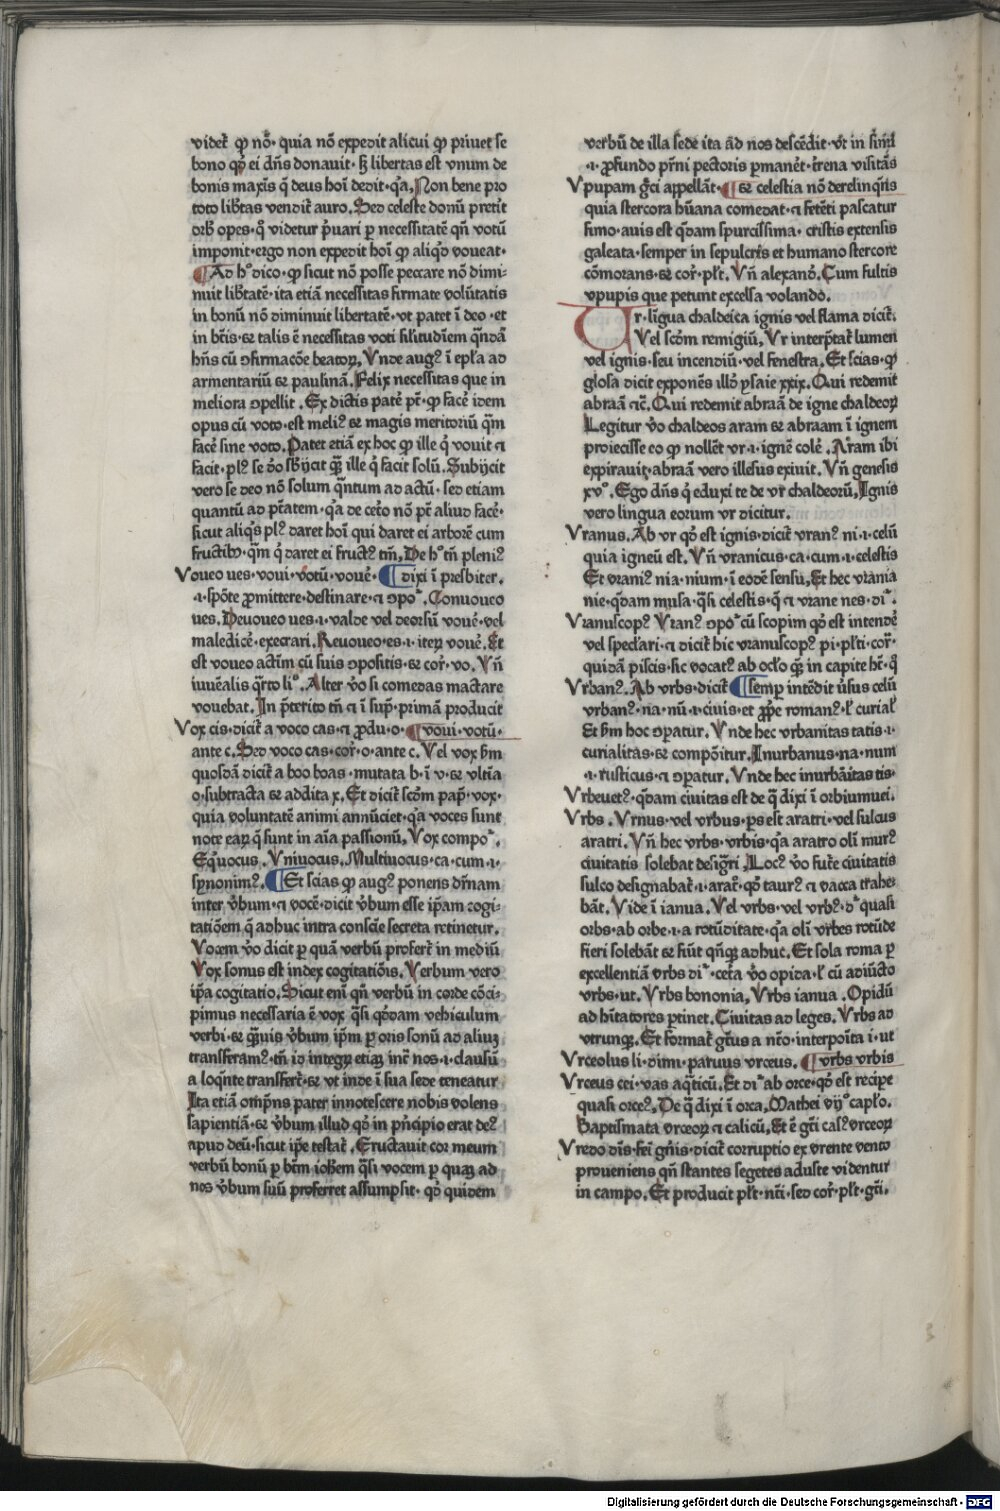 videt͛ ꝙ nō· quia nō expedit alicui ꝙ priuet se
bono qđ ei dn̄s donauit· sꝫ libertas est vnum de
bonis maxīs q̄ deus hoī dedit· qꝛa, Non bene pro
toto lib̛tas vendit͛ auro. Sed celeste donū preti͛t
orb̛ opes· q̛ videtur p̛uari ꝑ necessitatē qn̄ votū
imponit· ergo non expedit hoī ꝙ aliqd voueat·
¶ Ad hͦ dico· ꝙ sicut nō posse peccare nō dimi⸗
nuit lib̛tatē· ita etiā necessitas firmate volūtatis
in bonū nō diminuit libertatē· vt patet ī deo· et
in btīs· sꝫ talis ē necessitas voti sīlitudiēm qn̄dā
hn̄s cū ꝯfirmacōe beatoꝝ, Vnde augꝰ ī epl̄a ad
armentariū ⁊ paulinā. Felix necessitas que in
meliora ꝯpellit . Ex dictis patē pt̄· ꝙ facē idem
opus cū voto· est meliꝰ ⁊ magis meritoriū qm̄
facē sine voto. Patet etiā ex hoc ꝙ ille q̇ vouit ⁊
facit· plꝰ se do sb̛ijcit qͣꝫ ille q̇ facit solū. Subijcit
vero se deo nō solum qn̄tum ad actū· sed etiam
quantū ad ptātem· qꝛa de cet̛o nō pt̄ aliud facē·
sicut aliqs plꝰ daret hoī qui daret ei arborē cum
fructibꝰ· qm̄ q̇ daret ei fructꝰ tm̄, De hͦ tn̄ pleniꝰ
Voueo ues· voui· votū· vouē· ¶ dixi ī presbiter.
·i· spōte ꝓmittere· destinare· ⁊ ꝯpoᷣ. Conuoueo
ues. Deuoueo ues· i· valde vel deorsū vouē· vel
maledicē· execrari. Reuoueo· es· i· iteꝝ vouē. Et
est voueo actīm cū suis ꝯpositis· ⁊ cor͛· vo. Vn̄
iuuēalis q̄rto liͦ. Alter vo si comedas mactare
vouebat. In ꝑt̛erito tn̄ ⁊ ī supᷣ· primā producit
Vox cis· dicit͛ a voco cas· ⁊ ꝓdu· o· ¶ voui· votū·
ante c. Sed voco cas· cor͛· o· ante c. Vel vox bm̄
quosdā dicit͛ a boo boas· mutata b· ī v· ⁊ vltīa
o· subtracta ⁊ addita x. Et dicit͛ scōm papᷣ· vox·
quia voluntatē animi annūciet· qꝛa voces sunt
note eaꝝ q̄ sunt in aīa passionū, Vox compoᷣ.
Eqͥuocus. Vniuocus. Multiuocus· ca· cum· i·
synonimꝰ. ¶ Et scias ꝙ augꝰ ponens dr̄nam
inter v̛bum· ⁊ vocē· dicit v̛bum esse ip̄am cogi⸗
tatiōem q̄ adhuc intra consciē secreta retinetur.
Vocem vo dicit ꝑ quā verbū profert͛ in mediū
Vox sonus est index cogitatiōis. Verbum vero
ip̄a cogitatio. Sicut eni̅ qn̄ verbū in corde cōci⸗
pimus necessaria ē vox qͣsi qddam vehiculum
verbi· ⁊ qͣuis v̛bum ip̄m ꝑ oris sonū ad aliuꝫ
transferamꝰ· tn̄ id integꝝ etiaꝫ int̄ nos· i· clausū
a loqn̄te transfert͛· ⁊ vt inde ī sua sede teneatur
Ita etiā omp̄ns pater innotescere nobis volens
sapientiā· ⁊ v̛bum illud qd̄ in pn̄cipio erat deꝰ
apud deū· sicut ip̄e testat͛. Eructauit cor meum
verbū bonū ꝑ btm̄ iohem qͣsi vocem ꝑ quaꝫ ad
nos v̛bum suū proferret assumpsit· qd quidem
verbū de illa sede ita ad nos descēdit· vt in sinu
·i· ꝓfundo pr̄ni pectoris ꝑmanet̄· t̛rena visitās
Vpupam gci appellāt· ¶ ⁊ celestia nō derelinqn̄s
quia stercora hūana comedat· ⁊ fetēti pascatur
fimo· auis est qͣdam spurcissima· cristis extensis
galeata· semper in sepulcris et humano stercore
cōmorans· ⁊ cor͛· plt̄. Vn̄ alexand̛. Cum fultis
vpupis que petunt excelsa volando.
Vr· līgua chaldeica ignis vel flama dicit͛.
Vel scōm remigiū, Vr interp̄tat͛ lumen
vel ignis· seu incendiū· vel fenestra. Et scias· ꝙ
glosa dicit exponēs illd̛ ysaie xxix. Qui redemit
abraā ⁊c̄. Qui redemit abraā de igne chaldeoꝝ
Legitur vo chaldeos aram ⁊ abraam ī ignem
proiecisse eo ꝙ nollet̄ vr· i· ignē colē. Aram ibi
expirauit· abraā vero illesus exiuit. Vn̄ genesis
xvͦ. Ego dn̄s q̇ eduxi te de vr chaldeorū, Ignis
vero lingua eorum vr dicitur.
Vranus. Ab vr qd̄ est ignis· dicit͛ vranꝰ ni· i· celū
quia igneū est. Vn̄ vranicus· ca· cum· i· celestis
Et vraniꝰ nia· nium· ī eodē sensu, Et hec vrania
nie· qͣdam musa· qͣsi celestis· q̄ ⁊ vrane nes· diᷣ.
Vranuscopꝰ Vranꝰ ꝯpoᷣ cū scopim qd̄ est intendē
vel spectari· ⁊ dicit͛ hic vranuscopꝰ pi· plt̄i· cor͛·
quidā piscis· sic vocatꝰ ab oclo qͣꝫ in capite ht̄· q̇
Vrbanꝰ. Ab vrbs· dicit͛ ¶ semꝑ intēdit v̛sus celū
vrbanꝰ· na· nū· i· ciuis· et ꝓpͥe romanꝰ· ł curialꝭ
Et bm̄ hoc ꝯparatur. Vnde hec vrbanitas tatis· i·
curialitas· ⁊ compōitur. Inurbanus· na· num
·i· rusticus· ⁊ ꝯparatur. Vnde hec inurbāitas tis·
Vrbeuetꝰ· qͣdam ciuitas est de q̄ dixi ī orbiumuei.
Vrbs . Vrnus· vel vrbus· ꝑs est aratri· vel sulcus
aratri. Vn̄ hec vrbs· vrbis· qꝛa aratro oli̅ murꝰ
ciuitatis solebat designri, Locꝰ vo future ciuitatis
sulco designabat͛· i· arat͛o· qd̄ taurꝰ ⁊ vacca trahe⸗
bāt. Vide ī ianua. Vel vrbs· vel vrbꝰ· dᷣ quasi
orbs· ab orbe· i· a rotūditate· qꝛa oli̅ v̛bes rotūde
fieri solebāt· ⁊ fiūt qn̄qꝫ adhuc. Et sola roma ꝑ
excellentiā v̛bs diᷣ· cet̛a vo opida· ł cū adiūcto
vrbs· ut. Vrbs bononia, Vrbs ianua . Opidū
ad hītatores ꝑtinet. Ciuitas ad leges. Vrbs ad
vtrunqꝫ. Et format͛ gt̄us a nt̄o· interpōita i· ut
Vrceolus li· dimi· paruus vrceus. ¶ vrbs vrbis
Vrceus cei· vas aqͣticū. Et diᷣ ab orce· qd̄ est recipe
quasi orceꝰ. De q̄ dixi ī orca, Mathei vijͦ caplo.
Baptismata vrceoꝝ ⁊ calicū, Et ē gt̄i casꝰ vrceoꝝ
Vredo dīs· fei̅ gn̄is· dicit͛ corruptio ex vrente vento
proueniens qn̄ stantes segetes aduste videntur
in campo. Et producit plt̄· nt̄i· sed cor͛· plt̄· gt̄i.
Digitalisierung gefördert durch die Deutsche Forschungsgemeinschaft - DFG